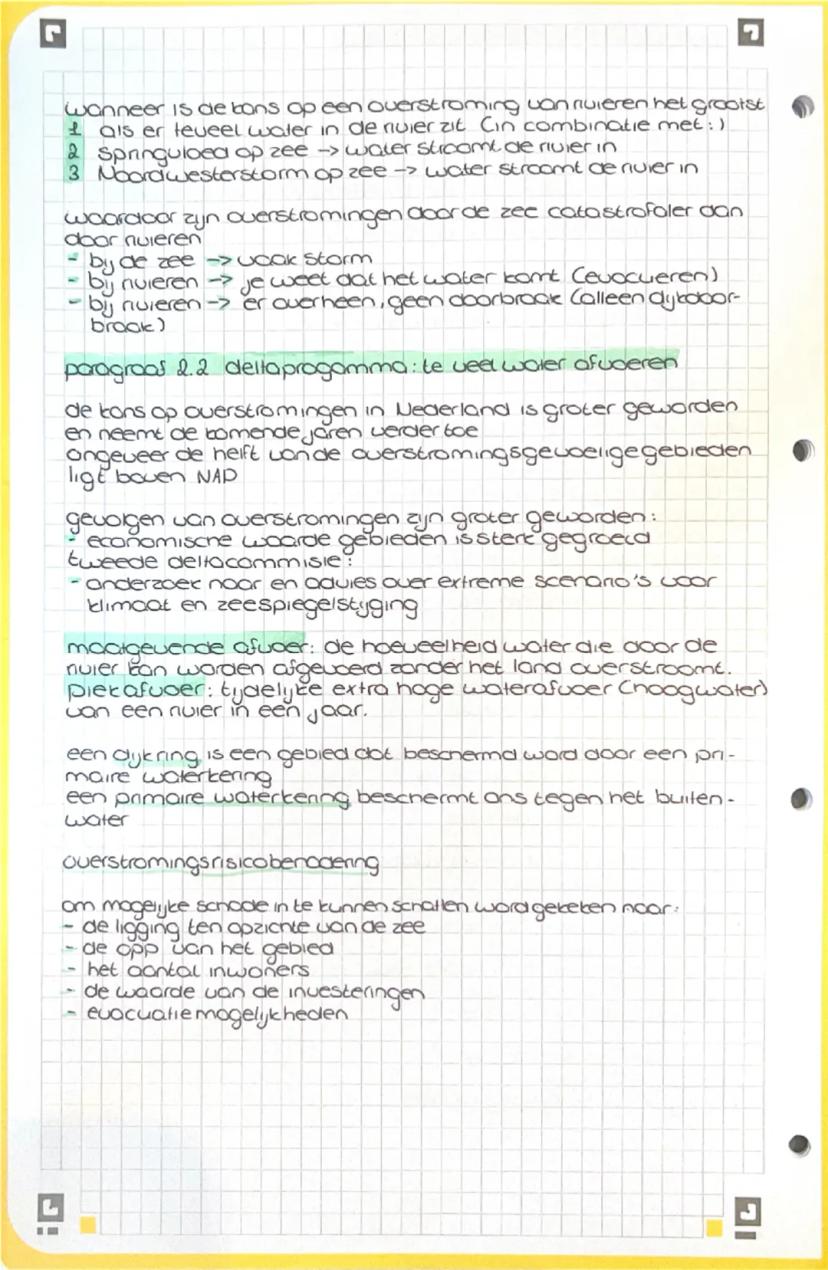 wanneer is de kans op een overstroming van rivieren het grootst
1 als er teveel water in de rivier zit (in combinatie met:)
2 springvloed op zee -> water stroomt de rivier in
3 Noordwesterstorm op zee -> water stroomt de rivier in
waardoor zijn overstromingen door de zee catastrofaler dan
door rivieren
- bij de zee -> vaak storm
- bij rivieren -> je weet dat het water komt (evacueren)
- bij rivieren -> er overheen, geen doorbraak (alleen dijkdoor-
braak)
paragraaf 2.2 deltaprogamma: te veel water afvoeren
de kans op overstromingen in Nederland is groter geworden
en neemt de komende jaren verder toe
ongeveer de helft van de overstromingsgevoelige gebieden
ligt boven NAP
gevolgen van overstromingen zijn groter geworden:
- economische waarde gebieden is sterk gegroeid
tweede deltacommisie:
- onderzoek naar en advies over extreme scenario's voor
klimaat en zeespiegelstijging
maatgevende afvoer: de hoeveelheid water die door de
rivier kan worden afgevoerd zonder het land overstroomt.
piekafvoer: tijdelijke extra hoge waterafvoer (hoogwater)
van een rivier in een jaar.
een dijkring is een gebied dat beschermd word door een pri-
maire waterkering
een primaire waterkering beschermt ons tegen het buiten-
water
overstromingsrisicobenadering
om mogelijke schade in te kunnen schatten word gekeken naar:
- de ligging ten opzichte van de zee
- de opp van het gebied
- het aantal inwoners
- de waarde van de investeringen
- evacuatiemogelijkheden